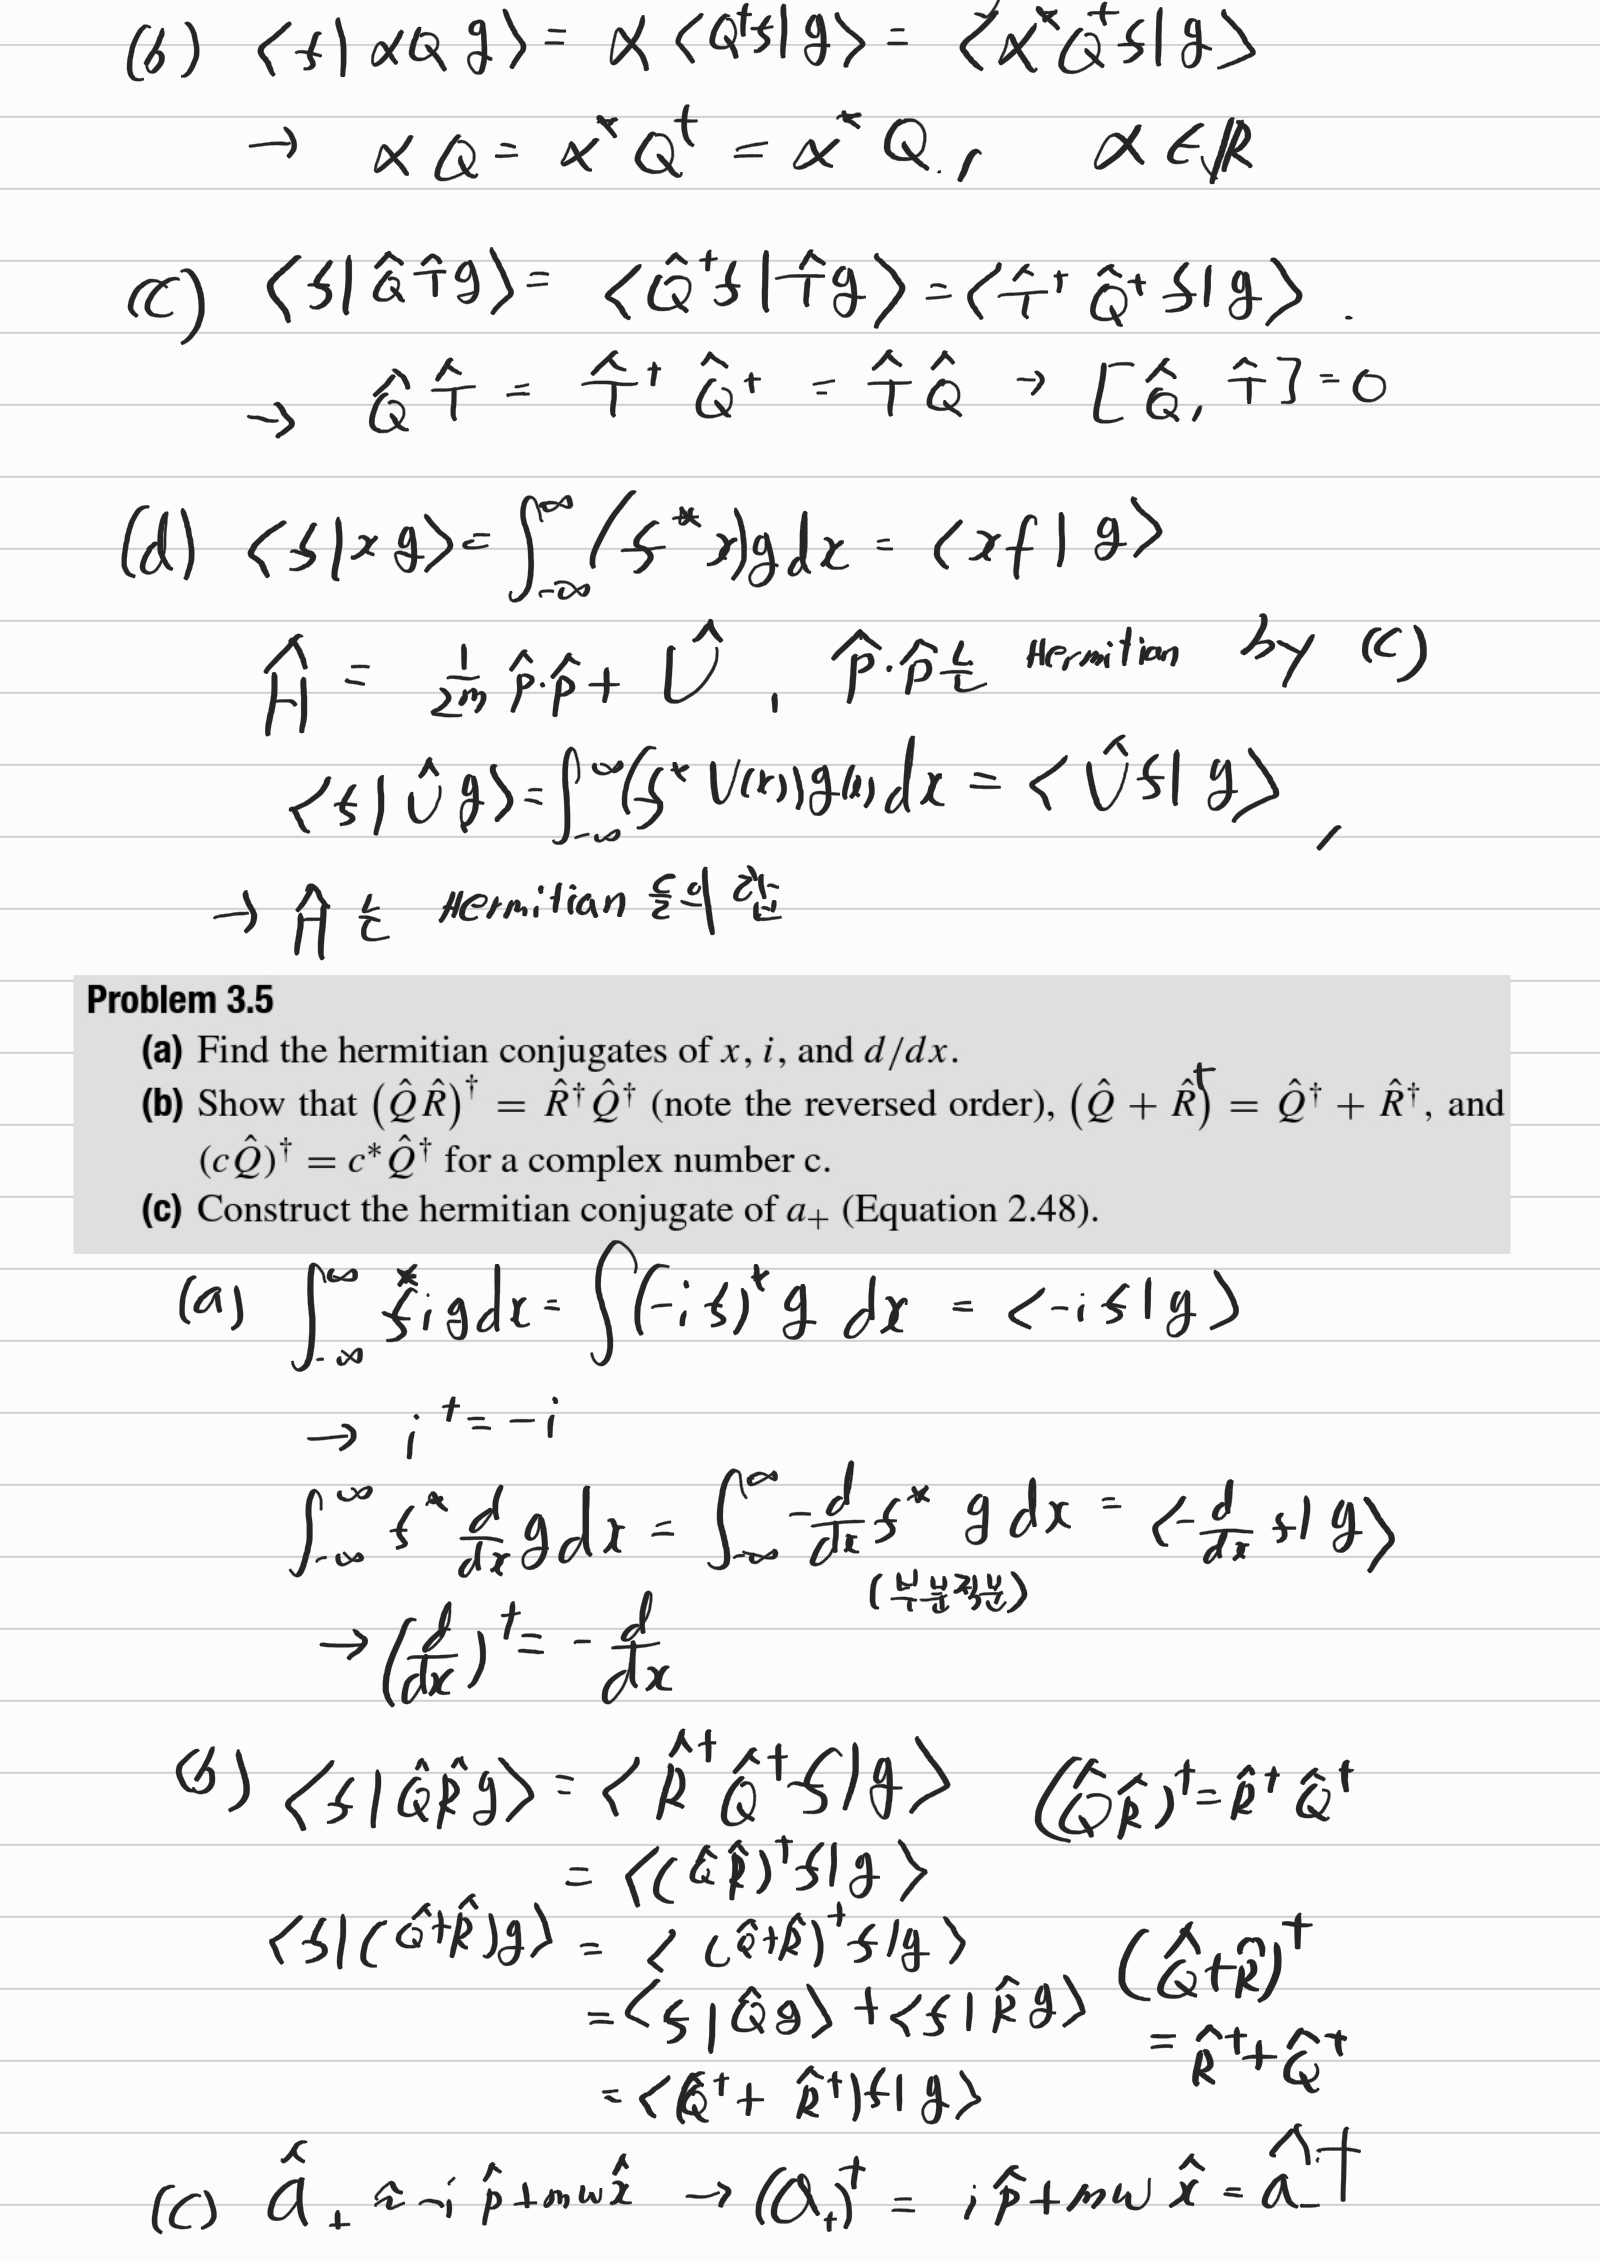 (b) ⟨f|αQ g⟩ = α⟨Q†f|g⟩ = ⟨α*Q†f|g⟩
→ αQ = α*Q† = α*Q. , α∈ℝ
(c) ⟨f|Q̂T̂g⟩ = ⟨Q̂†f|T̂g⟩ = ⟨T̂†Q̂†f|g⟩ .
→ Q̂T̂ = T̂†Q̂† = T̂Q̂ → [Q̂, T̂] = 0
(d) ⟨f|x g⟩ = ∫_{-∞}^{∞} (f* x) g dx = ⟨xf|g⟩
Ĥ = 1/2m p̂·p̂ + Û , p̂·p̂는 Hermitian by (c)
⟨f|Û g⟩ = ∫_{-∞}^{∞} (f* U(x)) g(x) dx = ⟨Ûf|g⟩ ,
→ Ĥ는 Hermitian 들의 합
Problem 3.5
(a) Find the hermitian conjugates of x, i, and d/dx.
(b) Show that (Q̂R̂)† = R̂†Q̂† (note the reversed order), (Q̂ + R̂)† = Q̂† + R̂†, and
(cQ̂)† = c*Q̂† for a complex number c.
(c) Construct the hermitian conjugate of a₊ (Equation 2.48).
(a) ∫_{-∞}^{∞} f* i g dx = ∫ (-i f)* g dx = ⟨-i f|g⟩
→ i† = -i
∫_{-∞}^{∞} f* d/dx g dx = ∫_{-∞}^{∞} - d/dx f* g dx = ⟨- d/dx f|g⟩
(부분적분)
→ (d/dx)† = - d/dx
(b) ⟨f|Q̂R̂g⟩ = ⟨R̂†Q̂†f|g⟩ (Q̂R̂)† = R̂†Q̂†
= ⟨(Q̂R̂)†f|g⟩
⟨f|(Q̂+R̂)g⟩ = ⟨(Q̂+R̂)†f|g⟩ (Q̂+R̂)†
= ⟨f|Q̂g⟩ + ⟨f|R̂g⟩
= R̂† + Q̂†
= ⟨(Q̂† + R̂†)f|g⟩
(c) â₊ ≈ -i p̂ + mω x̂ → (a₊)† = i p̂ + mω x̂ = â₋†